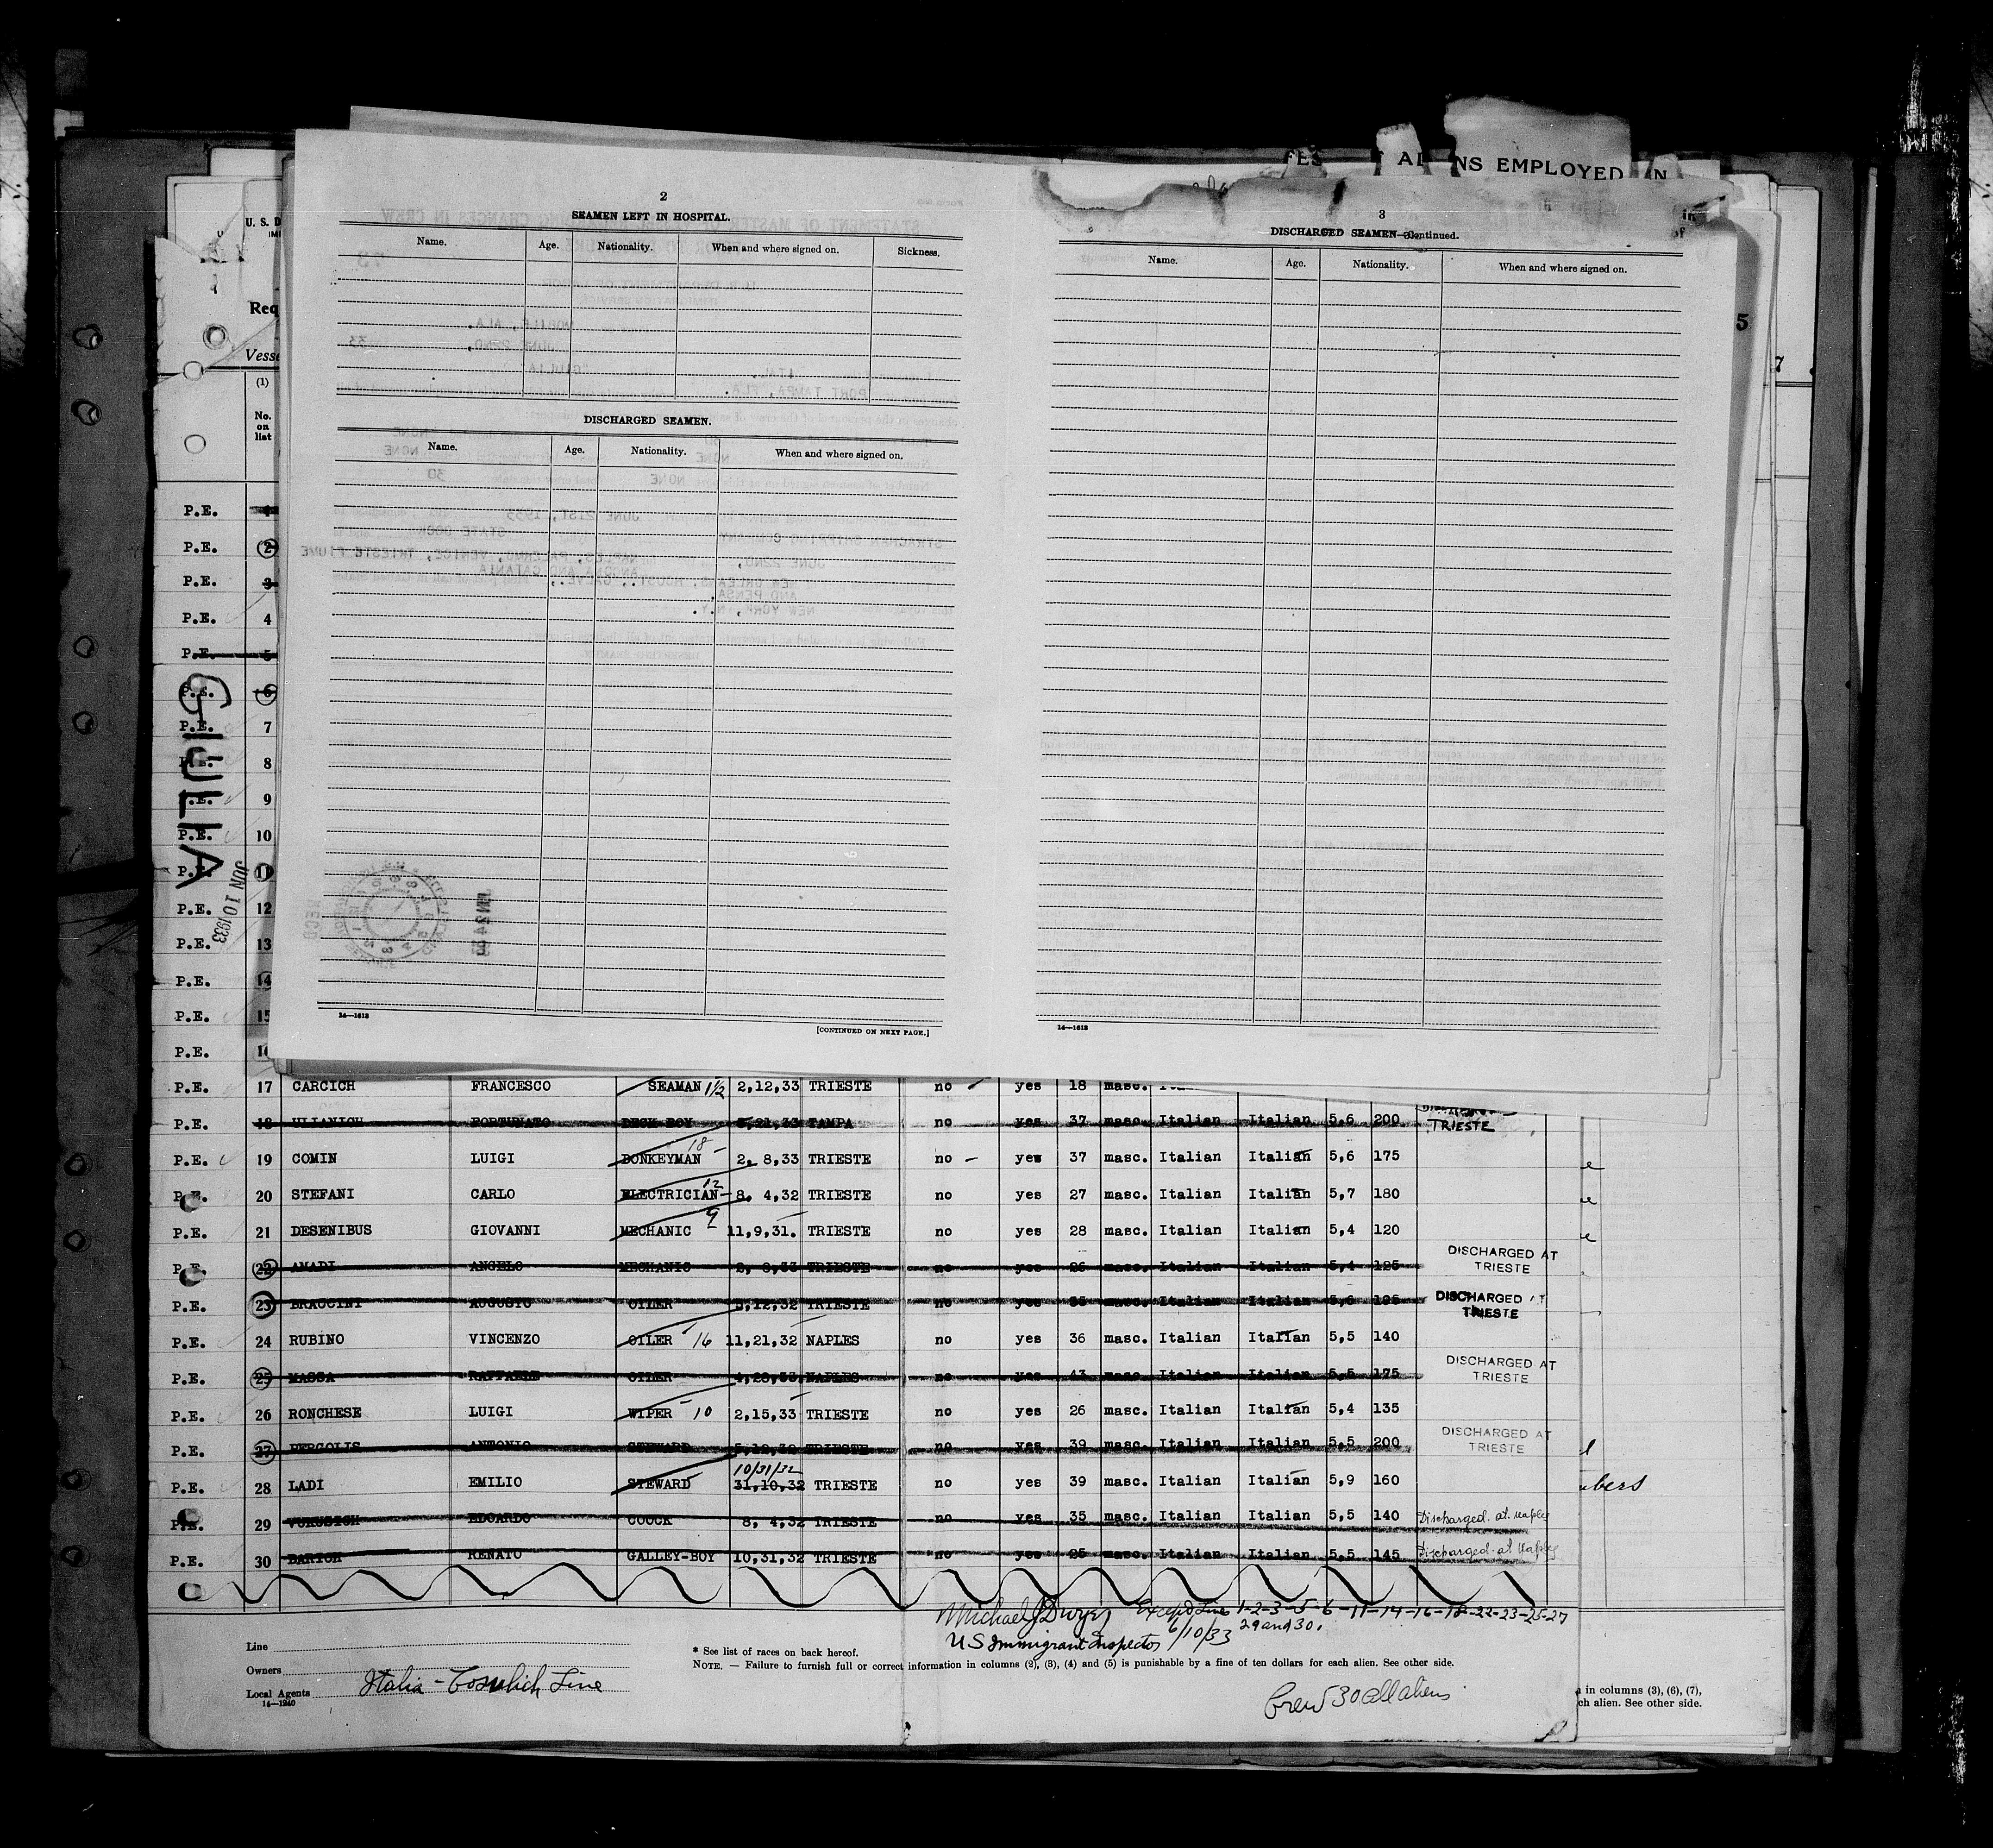 FES
NS EMPLOYED
2
SEAMEN LEFT IN HOSPITAL.
Name. Age. Nationality. When and where signed on. Sickness.
DISCHARGED SEAMEN.
Name. Age. Nationality. When and where signed on.
14—1613
[CONTINUED ON NEXT PAGE.]
3
DISCHARGED SEAMEN—Continued.
Name. Age. Nationality. When and where signed on.
14—1613
5
7
U. S. D
Req
Vesse
(1)
No. on list
GIULIA
JUN 10 1933
P.E.
P.E. 2
P.E. 3
P.E. 4
P.E. 5
P.E. 6
P.E. 7
P.E. 8
P.E. 9
P.E. 10
P.E. 11
P.E. 12
P.E. 13
P.E. 14
P.E. 15
P.E. 16
P.E. 17 CARCICH FRANCESCO SEAMAN 1½ 2,12,33 TRIESTE no yes 18 masc.
P.E. 18 ULIANICH FORTUNATO DECK BOY 5,21,33 TAMPA no yes 37 masc. Italian Italian 5,6 200 TRIESTE
P.E. 19 COMIN LUIGI DONKEYMAN 18 2, 8,33 TRIESTE no yes 37 masc. Italian Italian 5,6 175
P.E. 20 STEFANI CARLO ELECTRICIAN 12 8, 4,32 TRIESTE no yes 27 masc. Italian Italian 5,7 180
P.E. 21 DESENIBUS GIOVANNI MECHANIC 9 11,9,31. TRIESTE no yes 28 masc. Italian Italian 5,4 120
P.E. 22 AMADI ANGELO MECHANIC 2, 8,33 TRIESTE no yes 26 masc. Italian Italian 5,4 125 DISCHARGED AT TRIESTE
P.E. 23 BRACCINI AUGUSTO OILER 5,12,32 TRIESTE no yes 35 masc. Italian Italian 5,6 195 DISCHARGED AT TRIESTE
P.E. 24 RUBINO VINCENZO OILER 16 11,21,32 NAPLES no yes 36 masc. Italian Italian 5,5 140
P.E. 25 MASSA RAFFAELE OILER 4,28,33, NAPLES no yes 43 masc. Italian Italian 5,5 175 DISCHARGED AT TRIESTE
P.E. 26 RONCHESE LUIGI WIPER 10 2,15,33 TRIESTE no yes 26 masc. Italian Italian 5,4 135
P.E. 27 PERGOLIS ANTONIO STEWARD 5,12,32 TRIESTE no yes 39 masc. Italian Italian 5,5 200 DISCHARGED AT TRIESTE
10/31/32
P.E. 28 LADI EMILIO STEWARD 31,10,32 TRIESTE no yes 39 masc. Italian Italian 5,9 160
P.E. 29 EDOARDO COOCK 8, 4,32 TRIESTE no yes 35 masc. Italian Italian 5,5 140 Discharged at Naples
P.E. 30 BARICH RENATO GALLEY-BOY 10,31,32 TRIESTE no yes 25 masc. Italian Italian 5,5 145 Discharged at Naples
Michael J Dwyer Except Lines 1-2-3-5-6-11-14-16-18-22-23-25-27
29 and 30.
US Immigrant Inspector 6/10/33
Line
Owners
Local Agents Italia - Cosulich Line
14—1240
* See list of races on back hereof.
NOTE. — Failure to furnish full or correct information in columns (2), (3), (4) and (5) is punishable by a fine of ten dollars for each alien. See other side.
Crew 30 all aliens
in columns (3), (6), (7),
ch alien. See other side.